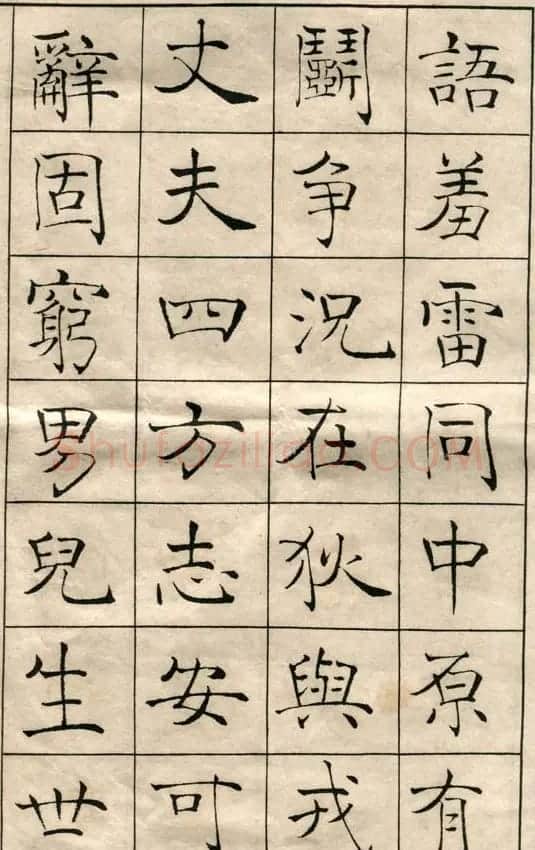 語羞雷同中原有
鬬爭況在狄與戎
丈夫四方志安可
辭固窮男兒生世
Shufaziliao.COM